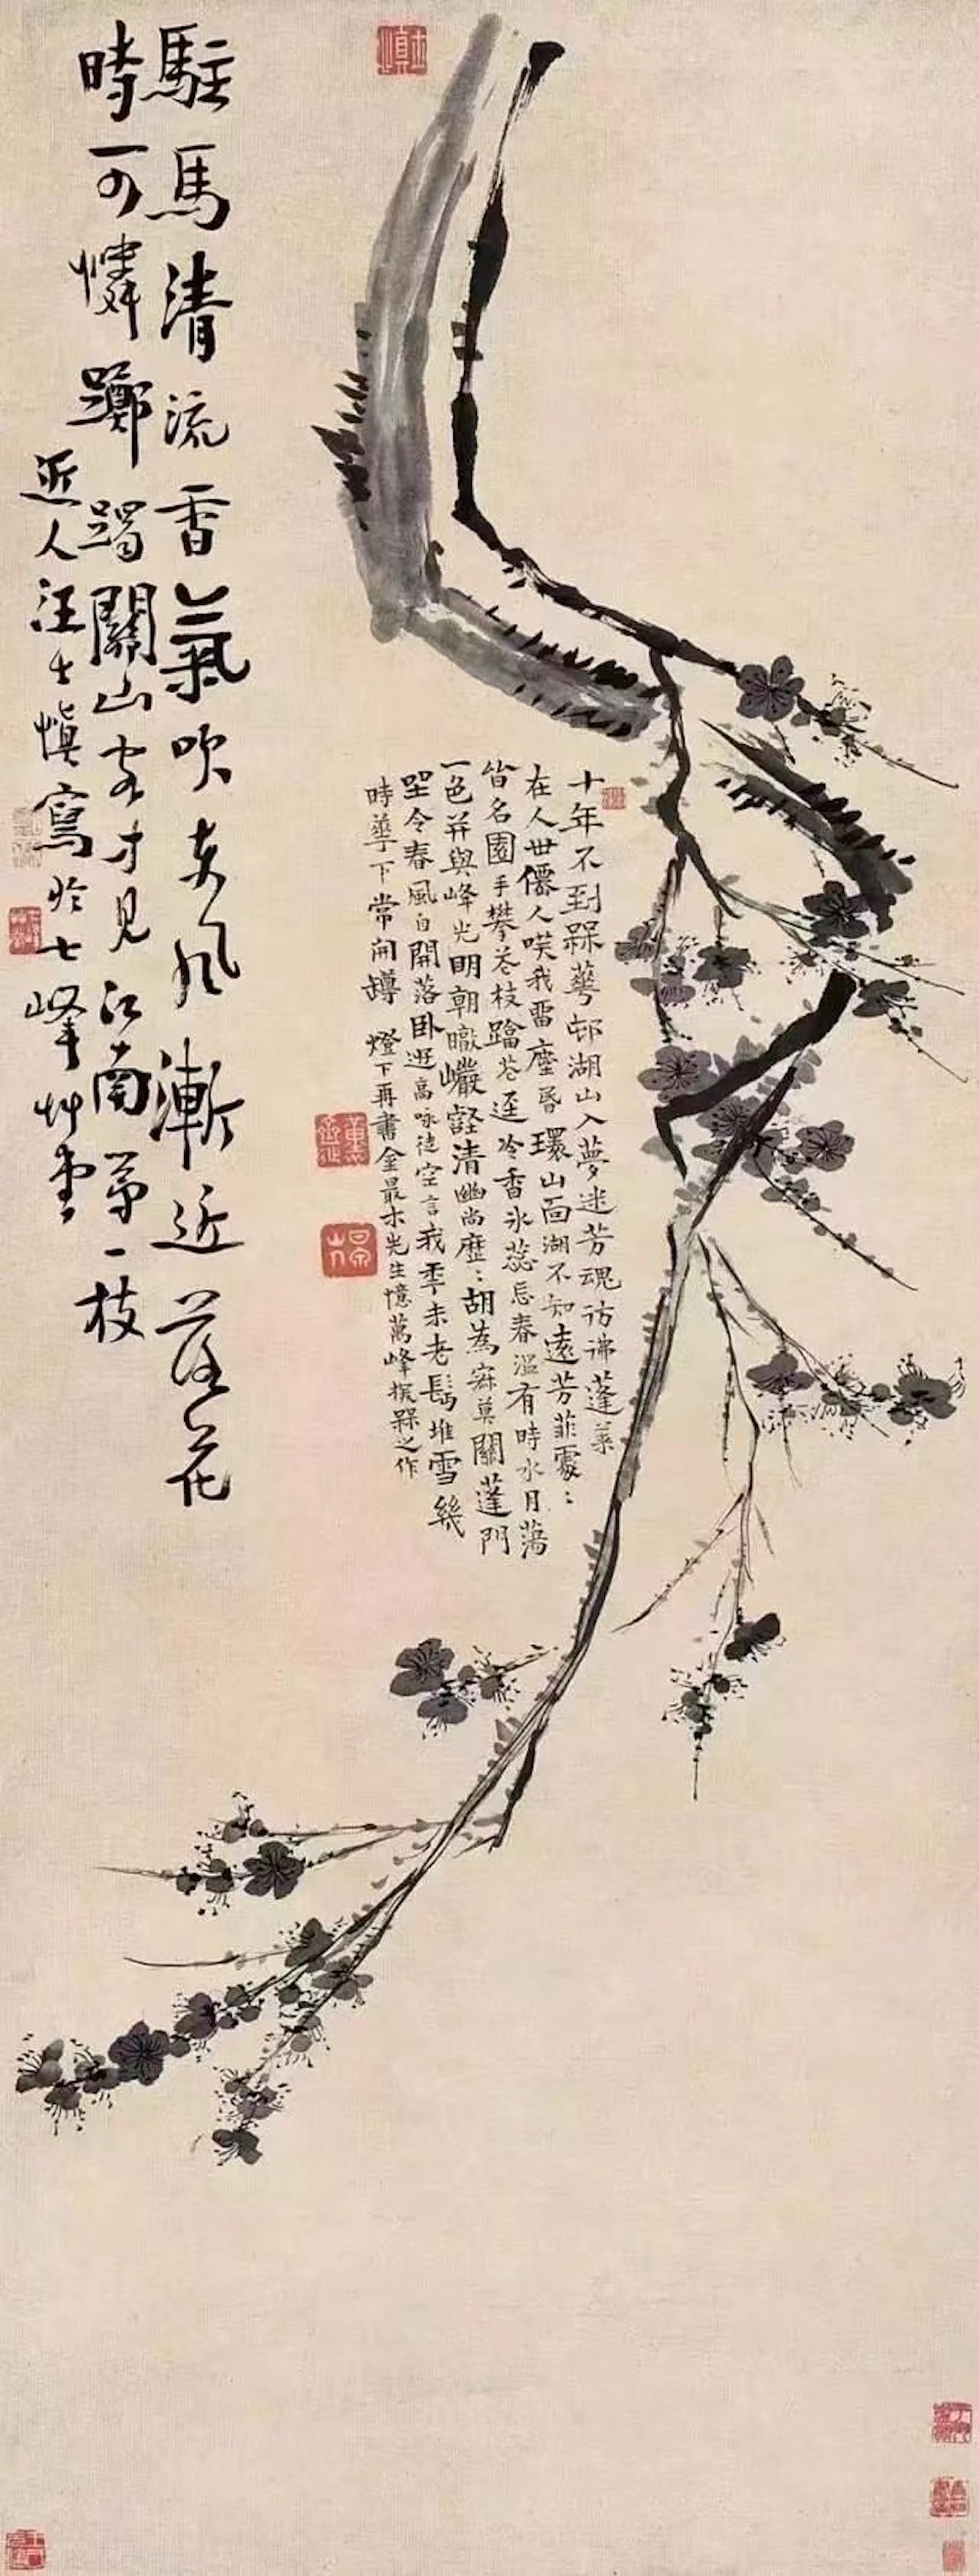 十年不到槑蕐邨湖山入夢迷芳魂彷彿蓬萊
在人世僊人唉我畱塵昬環山面湖不知遠芳菲處〻
皆名園手攀花枝蹋花逕冷香氷蕊忘春溫有時水月蕩
一色并與峰光明朝暾巖壑清幽尚歷〻胡為寂莫關蓬門
坐令春風自開落卧遊高咏徒空言我季未老髩堆雪幾
時蕐下常開罇 燈下再書金最木先生憶萬峰探槑之作
駐馬清流香氣吹東風漸近落花
時可憐躑躅關山客才見江南第一枝
近人汪士慎寫於七峰艸堂